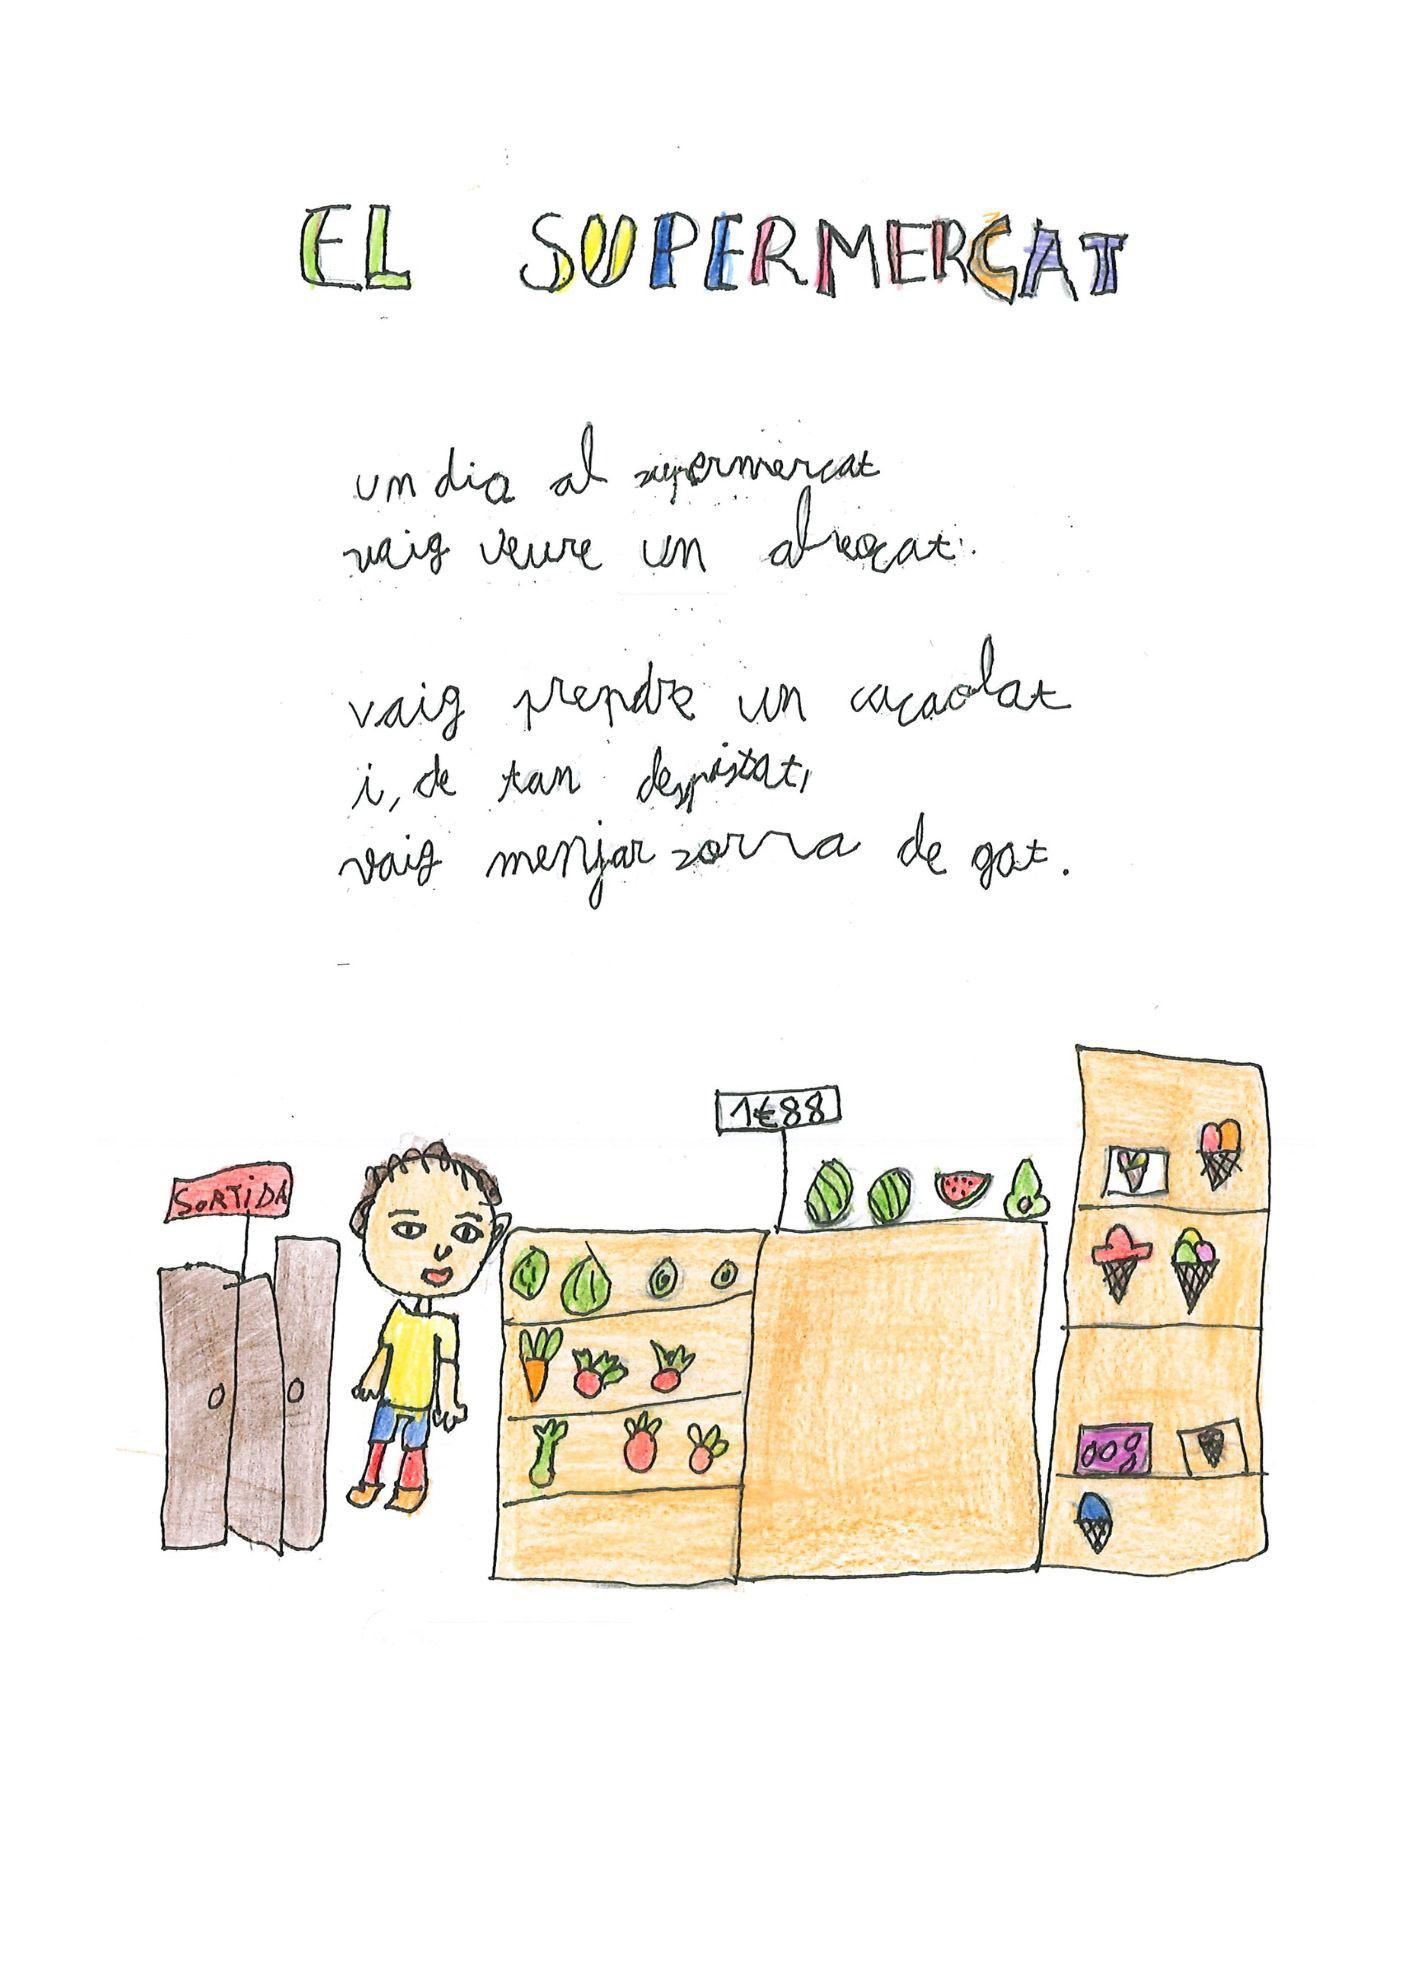 EL SUPERMERCAT
un dia al supermercat
vaig veure un alvocat.
vaig prendre un cacaolat
i, de tan despistat,
vaig menjar sorra de gat.
1€88
SORTIDA